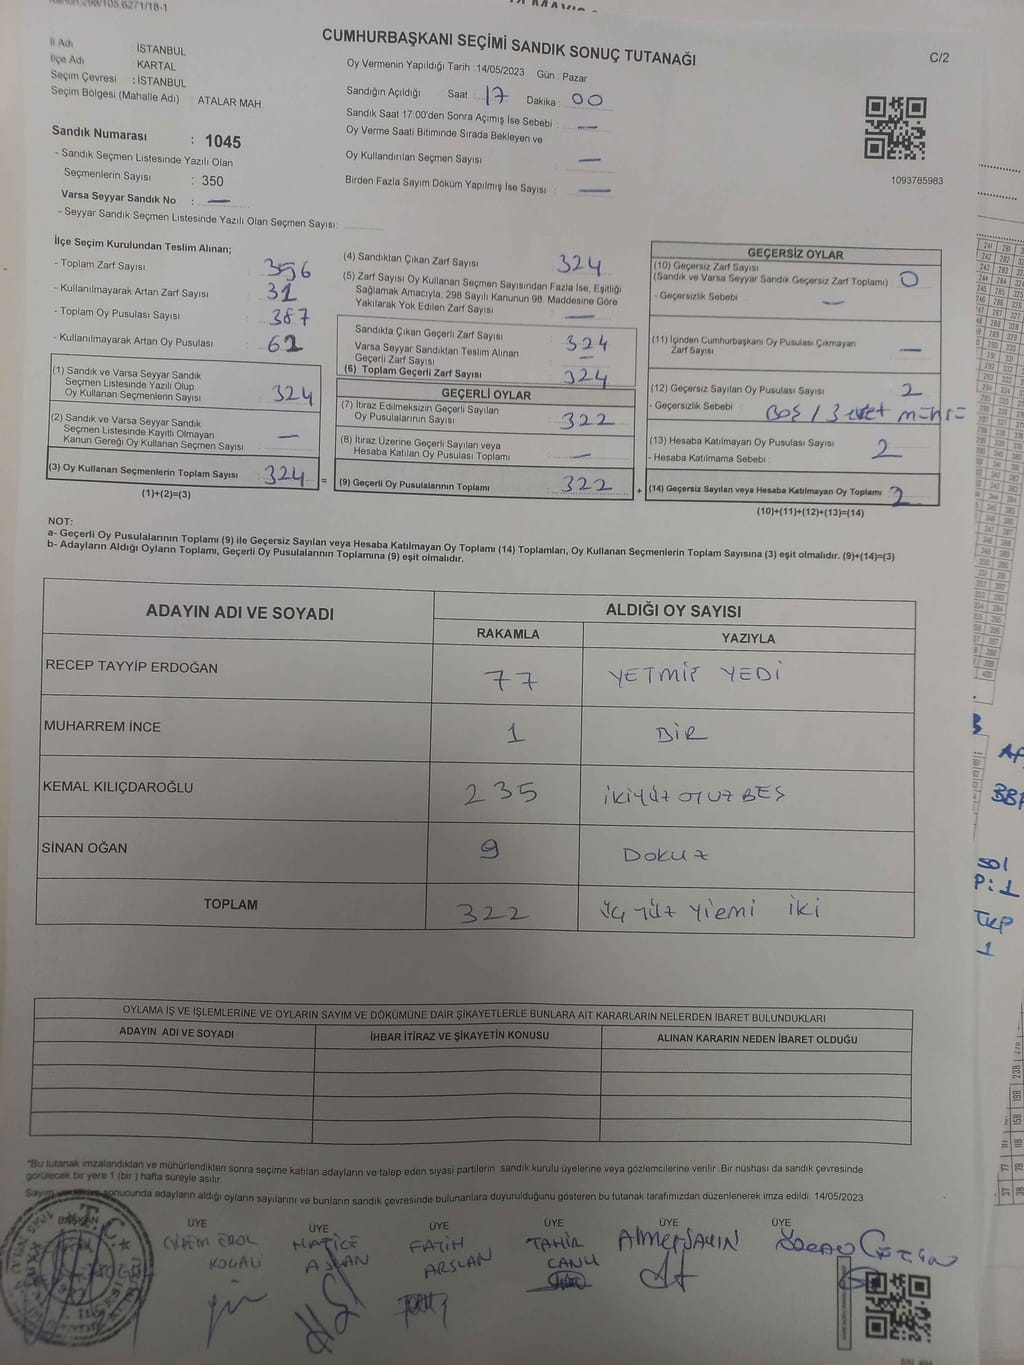 298/105,6271/18-1
CUMHURBAŞKANI SEÇİMİ SANDIK SONUÇ TUTANAĞI
C/2
İl Adı İSTANBUL
İlçe Adı KARTAL
Seçim Çevresi : İSTANBUL
Seçim Bölgesi (Mahalle Adı) : ATALAR MAH.
Sandık Numarası : 1045
- Sandık Seçmen Listesinde Yazılı Olan
Seçmenlerin Sayısı : 350
Varsa Seyyar Sandık No : —
- Seyyar Sandık Seçmen Listesinde Yazılı Olan Seçmen Sayısı:
Oy Vermenin Yapıldığı Tarih : 14/05/2023 Gün : Pazar
Sandığın Açıldığı Saat : 17 Dakika : 00
Sandık Saat 17:00'den Sonra Açımış İse Sebebi : —
Oy Verme Saati Bitiminde Sırada Bekleyen ve
Oy Kullandırılan Seçmen Sayısı —
Birden Fazla Sayım Döküm Yapılmış İse Sayısı : —
1093785983
İlçe Seçim Kurulundan Teslim Alınan;
- Toplam Zarf Sayısı : 356
- Kullanılmayarak Artan Zarf Sayısı : 31
- Toplam Oy Pusulası Sayısı : 387
- Kullanılmayarak Artan Oy Pusulası : 62
(1) Sandık ve Varsa Seyyar Sandık
Seçmen Listesinde Yazılı Olup
Oy Kullanan Seçmenlerin Sayısı : 324
(2) Sandık ve Varsa Seyyar Sandık
Seçmen Listesinde Kayıtlı Olmayan
Kanun Gereği Oy Kullanan Seçmen Sayısı : —
(3) Oy Kullanan Seçmenlerin Toplam Sayısı : 324 =
(1)+(2)=(3)
(4) Sandıktan Çıkan Zarf Sayısı : 324
(5) Zarf Sayısı Oy Kullanan Seçmen Sayısından Fazla İse, Eşitliği
Sağlamak Amacıyla, 298 Sayılı Kanunun 98. Maddesine Göre
Yakılarak Yok Edilen Zarf Sayısı : —
Sandıkta Çıkan Geçerli Zarf Sayısı : 324
Varsa Seyyar Sandıktan Teslim Alınan
Geçerli Zarf Sayısı : —
(6) Toplam Geçerli Zarf Sayısı : 324
GEÇERLİ OYLAR
(7) İtiraz Edilmeksizin Geçerli Sayılan
Oy Pusulalarının Sayısı : 322
(8) İtiraz Üzerine Geçerli Sayılan veya
Hesaba Katılan Oy Pusulası Toplamı : —
(9) Geçerli Oy Pusulalarının Toplamı : 322 +
GEÇERSİZ OYLAR
(10) Geçersiz Zarf Sayısı
(Sandık ve Varsa Seyyar Sandık Geçersiz Zarf Toplamı) : 0
- Geçersizlik Sebebi : —
(11) İçinden Cumhurbaşkanı Oy Pusulası Çıkmayan
Zarf Sayısı : —
(12) Geçersiz Sayılan Oy Pusulası Sayısı : 2
- Geçersizlik Sebebi : BOŞ / 3 evet
(13) Hesaba Katılmayan Oy Pusulası Sayısı : 2
- Hesaba Katılmama Sebebi :
(14) Geçersiz Sayılan veya Hesaba Katılmayan Oy Toplamı : 2
(10)+(11)+(12)+(13)=(14)
NOT:
a- Geçerli Oy Pusulalarının Toplamı (9) ile Geçersiz Sayılan veya Hesaba Katılmayan Oy Toplamı (14) Toplamları, Oy Kullanan Seçmenlerin Toplam Sayısına (3) eşit olmalıdır. (9)+(14)=(3)
b- Adayların Aldığı Oyların Toplamı, Geçerli Oy Pusulalarının Toplamına (9) eşit olmalıdır.
ADAYIN ADI VE SOYADI ALDIĞI OY SAYISI
RAKAMLA YAZIYLA
RECEP TAYYİP ERDOĞAN 77 YETMİŞ YEDİ
MUHARREM İNCE 1 BİR
KEMAL KILIÇDAROĞLU 235 İKİYÜZ OTUZ BEŞ
SİNAN OĞAN 9 DOKUZ
TOPLAM 322 ÜÇ YÜZ YİRMİ İKİ
OYLAMA İŞ VE İŞLEMLERİNE VE OYLARIN SAYIM VE DÖKÜMÜNE DAİR ŞİKAYETLERLE BUNLARA AİT KARARLARIN NELERDEN İBARET BULUNDUKLARI
ADAYIN ADI VE SOYADI İHBAR İTİRAZ VE ŞİKAYETİN KONUSU ALINAN KARARIN NEDEN İBARET OLDUĞU
*Bu tutanak imzalandıktan ve mühürlendikten sonra seçime katılan adayların ve talep eden siyasi partilerin sandık kurulu üyelerine veya gözlemcilerine verilir. Bir nüshası da sandık çevresinde
görülecek bir yere 1 (bir) hafta süreyle asılır.
Sayım sonucunda adayların aldığı oyların sayılarını ve bunların sandık çevresinde bulunanlara duyurulduğunu gösteren bu tutanak tarafımızdan düzenlenerek imza edildi. 14/05/2023
BAŞKAN ÜYE ÜYE ÜYE ÜYE ÜYE ÜYE
EROL KOCALİ
HATİCE ASLAN
FATİH ARSLAN
TAHİR CANLI
T.C.
sol
P:1
TKP
1